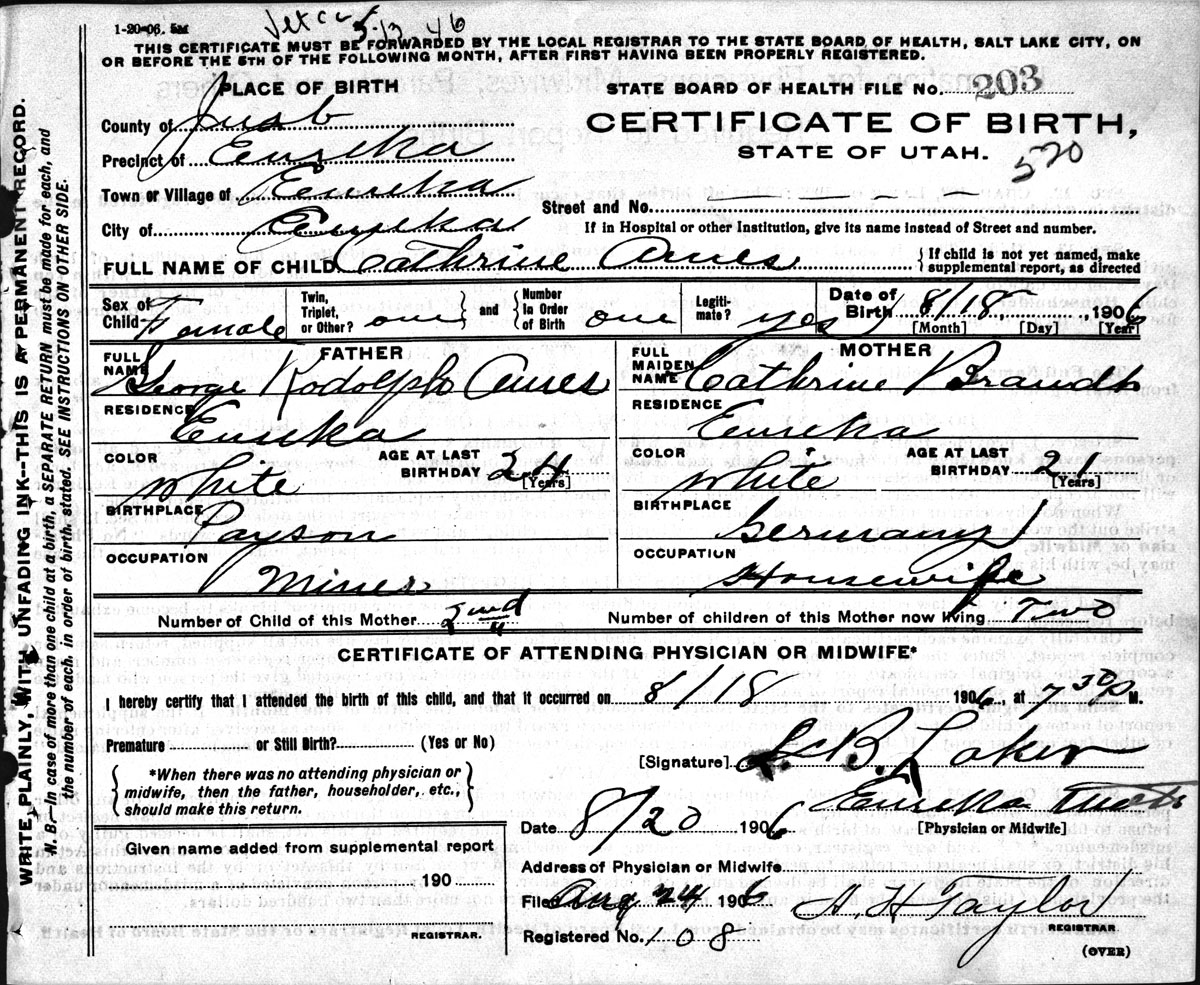 1-20-06. 5M
5-13 46
THIS CERTIFICATE MUST BE FORWARDED BY THE LOCAL REGISTRAR TO THE STATE BOARD OF HEALTH, SALT LAKE CITY, ON
OR BEFORE THE 5TH OF THE FOLLOWING MONTH, AFTER FIRST HAVING BEEN PROPERLY REGISTERED.
PLACE OF BIRTH
STATE BOARD OF HEALTH FILE NO. 203
County of Juab
CERTIFICATE OF BIRTH,
STATE OF UTAH.
520
Precinct of Eureka
Town or Village of Eureka
Street and No.
City of Eureka
If in Hospital or other Institution, give its name instead of Street and number.
FULL NAME OF CHILD Cathrine Ames
{ If child is not yet named, make supplemental report, as directed
Sex of Child Female
Twin, Triplet, or Other? one } and { Number In Order of Birth one
Legitimate? yes
Date of Birth 8/18, 1906
[Month] [Day] [Year]
FATHER
FULL NAME George Rodolph Ames
RESIDENCE Eureka
COLOR White
AGE AT LAST BIRTHDAY 24 [Years]
BIRTHPLACE Payson
OCCUPATION Miner
MOTHER
FULL MAIDEN NAME Cathrine Brandt
RESIDENCE Eureka
COLOR White
AGE AT LAST BIRTHDAY 21 [Years]
BIRTHPLACE Germany
OCCUPATION Housewife
Number of Child of this Mother 2nd
Number of children of this Mother now living Two
CERTIFICATE OF ATTENDING PHYSICIAN OR MIDWIFE*
I hereby certify that I attended the birth of this child, and that it occurred on 8/18 1906 at 7 30 P. M.
Premature or Still Birth? (Yes or No)
[Signature]
{ *When there was no attending physician or midwife, then the father, householder, etc., should make this return. }
Eureka Utah
[Physician or Midwife]
Date 8/20 1906
Given name added from supplemental report
190
REGISTRAR.
Address of Physician or Midwife
Filed Aug 24 1906
A. H Taylor
REGISTRAR
Registered No. 108
(OVER)
WRITE PLAINLY, WITH UNFADING INK--THIS IS A PERMANENT RECORD.
N. B.--In case of more than one child at a birth, a SEPARATE RETURN must be made for each, and
the number of each, in order of birth, stated. SEE INSTRUCTIONS ON OTHER SIDE.